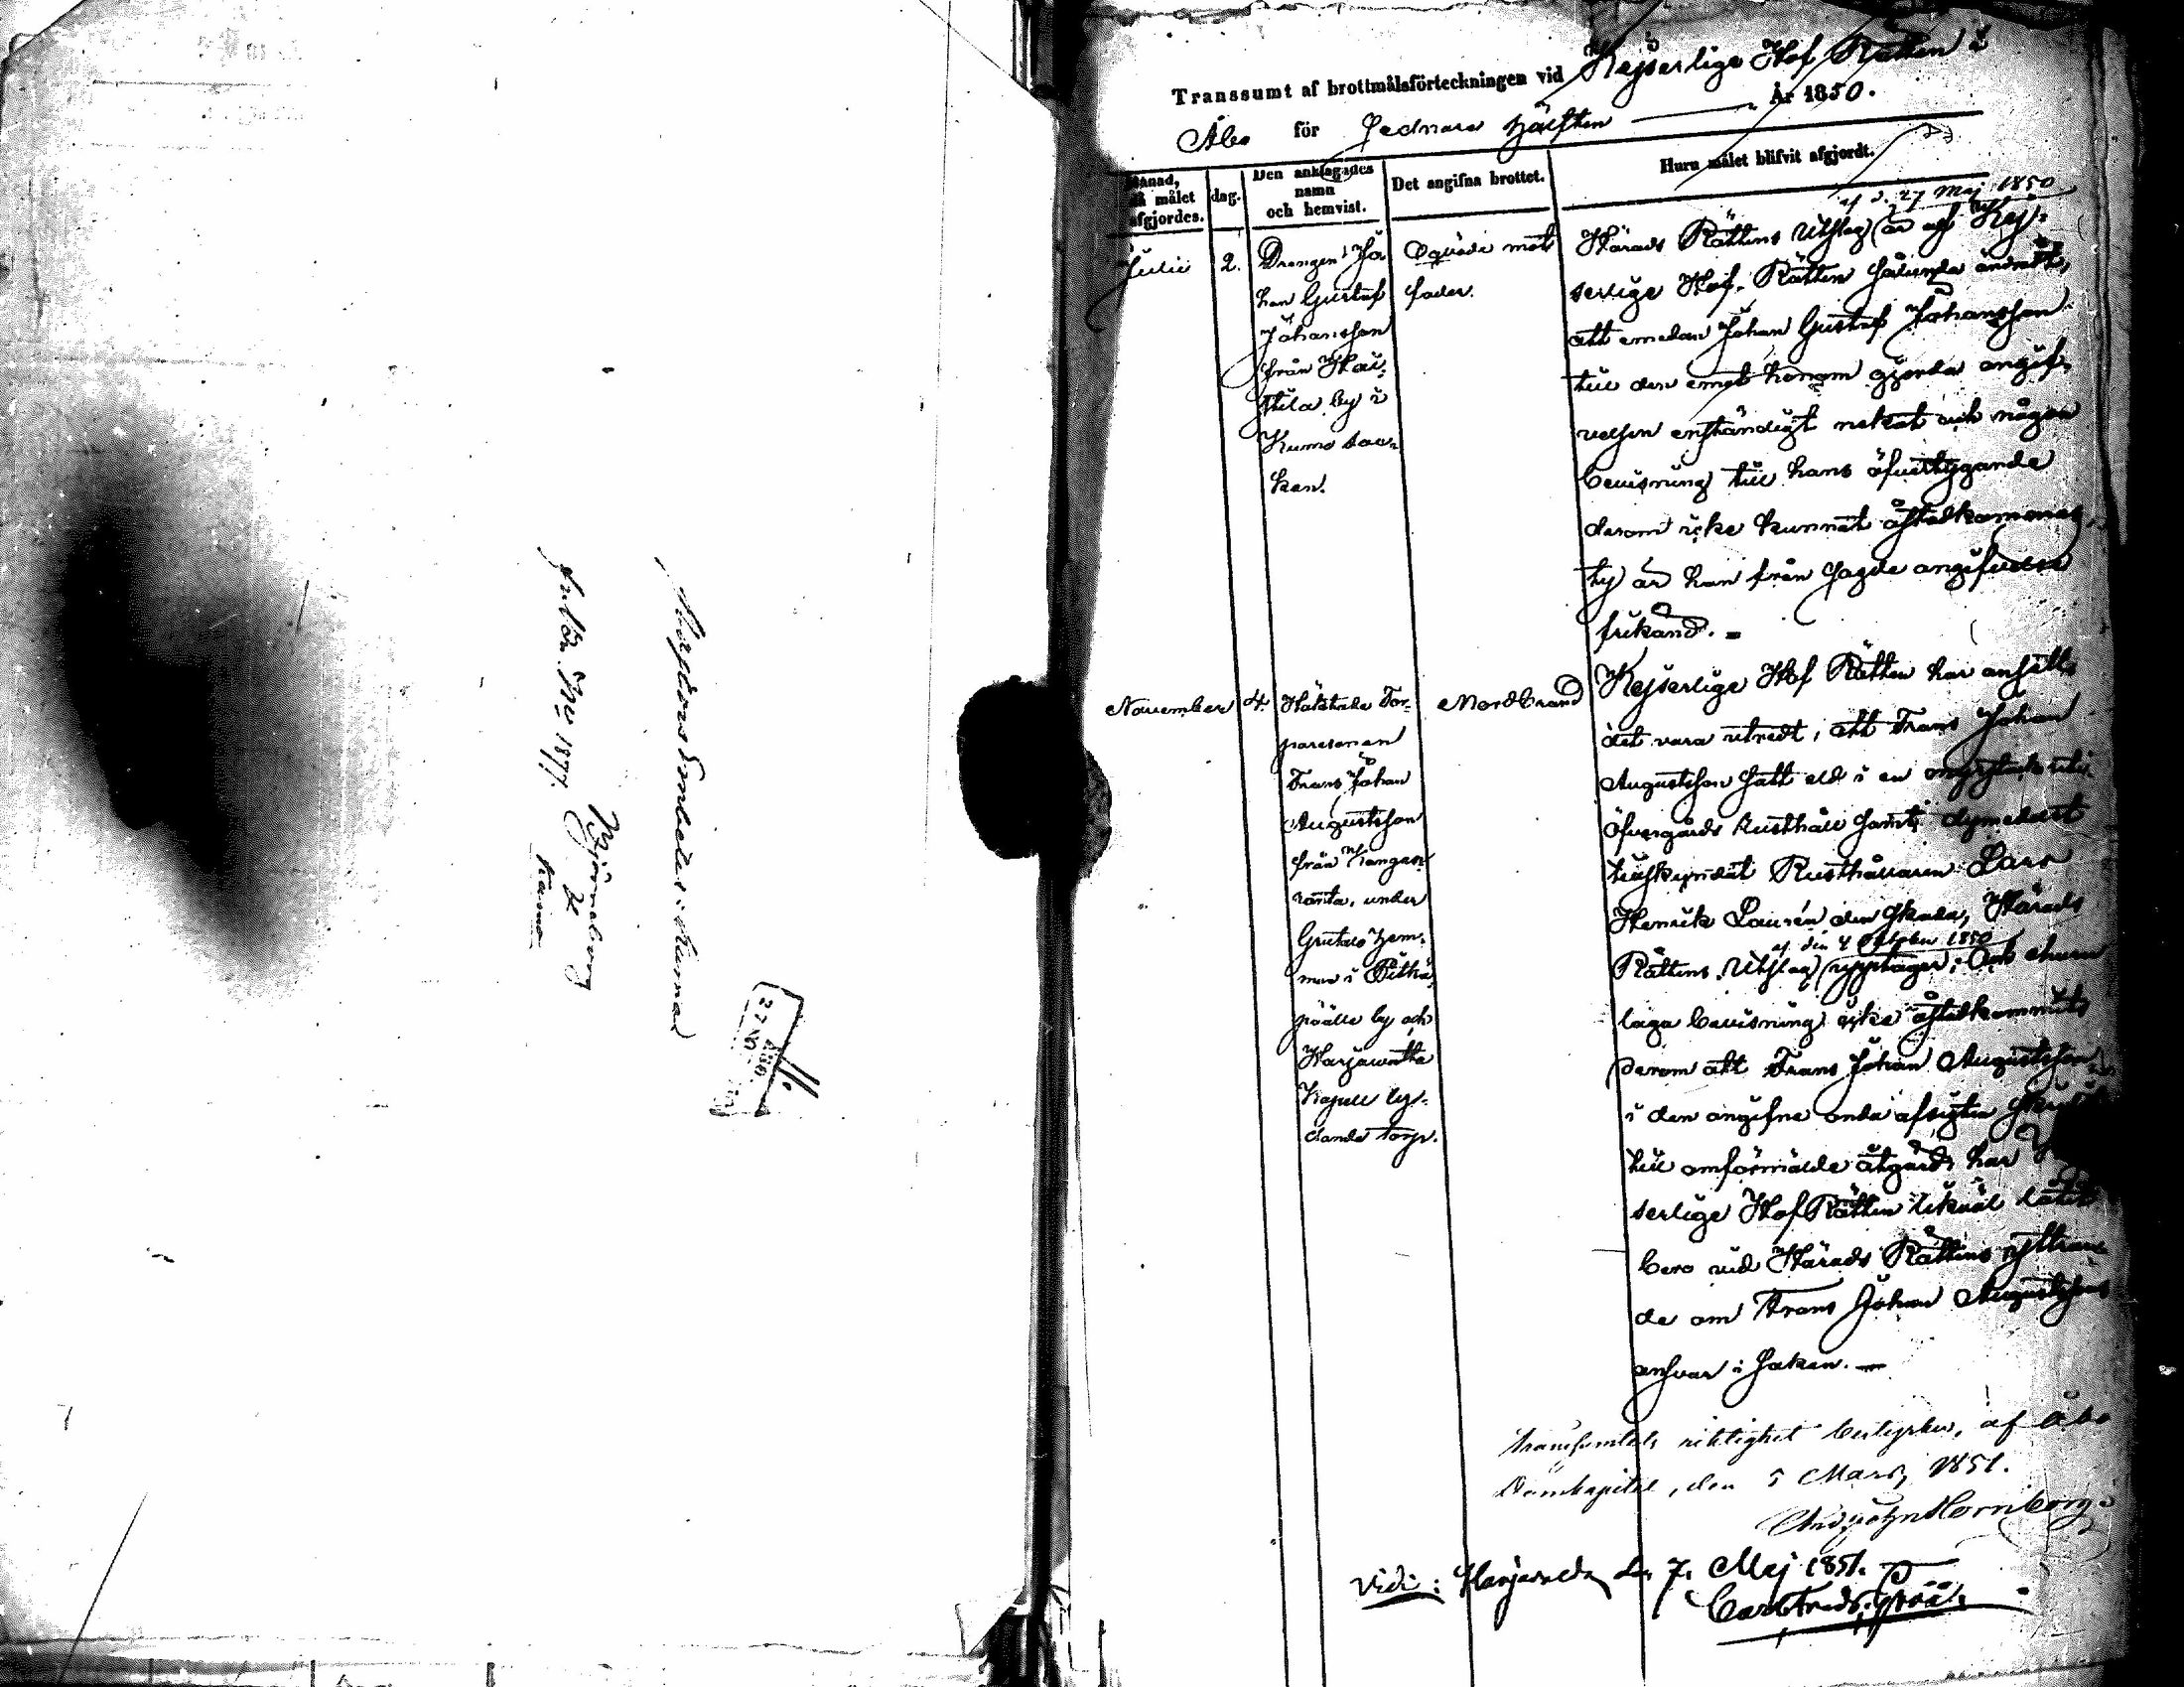 Kyrkoherde Embetet i Kumo
Björneborg
&
Kumo
ÅBO
27 NO
Transsumt af brottmålsförteckningen vid Kejserlige Hof Rätten i
Åbo för sednare hälften År 1850.
Månad, då målet afgjordes.
dag.
Den anklagades namn och hemvist.
Det angifna brottet.
Huru målet blifvit afgjordt.
Julii
2.
Drängen Jo-
han Gustaf
Johansson
från
by i
Kumo soc-
ken.
Oqväde mot
fader.
af d. 27 Maj 1850
Härads Rättens Utslag är af Kej-
serlige Hof-Rätten sålunda ändradt,
att emedan Johan Gustaf Johansson
till den emot honom gjorda angif-
velsen enständigt nekat och någon
bevisning till hans öfvertygande
derom icke kunnat åstadkommas,
ty är han från sagde angifvelse
frikänd.
November
4.
Häktade Tor-
paresonen
Frans Johan
Augustsson
från
ranta, under
hem-
man i
by och
Harjawalta
Kapell ly-
dande torp.
Mordbrand
Kejserlige Hof Rätten har ansett
det vara utredt, att Frans Johan
Augustsson satt eld i en
Öfvergårds Rusthåll samt dymedelst
tillskyndat Rusthållaren Lars
Henrik Laurén den skada, Härads
af den 4 Oktober 1850
Rättens Utslag upptager; Och ehuru
laga bevisning icke åstadkommits
derom att Frans Johan Augustsson
i den angifne onda afsigten
till omförmälde åtgärd, har
serlige Hof Rätten likväl låtit
bero vid Härads Rättens yttran-
de om Frans Johan Augustssons
ansvar i saken.
Transsumtets riktighet bestyrker, af Åbo
Domkapitel, den 5 Mars 1851.
Hornborg
Vidi: Harjavalta d. 7. Maj 1851.